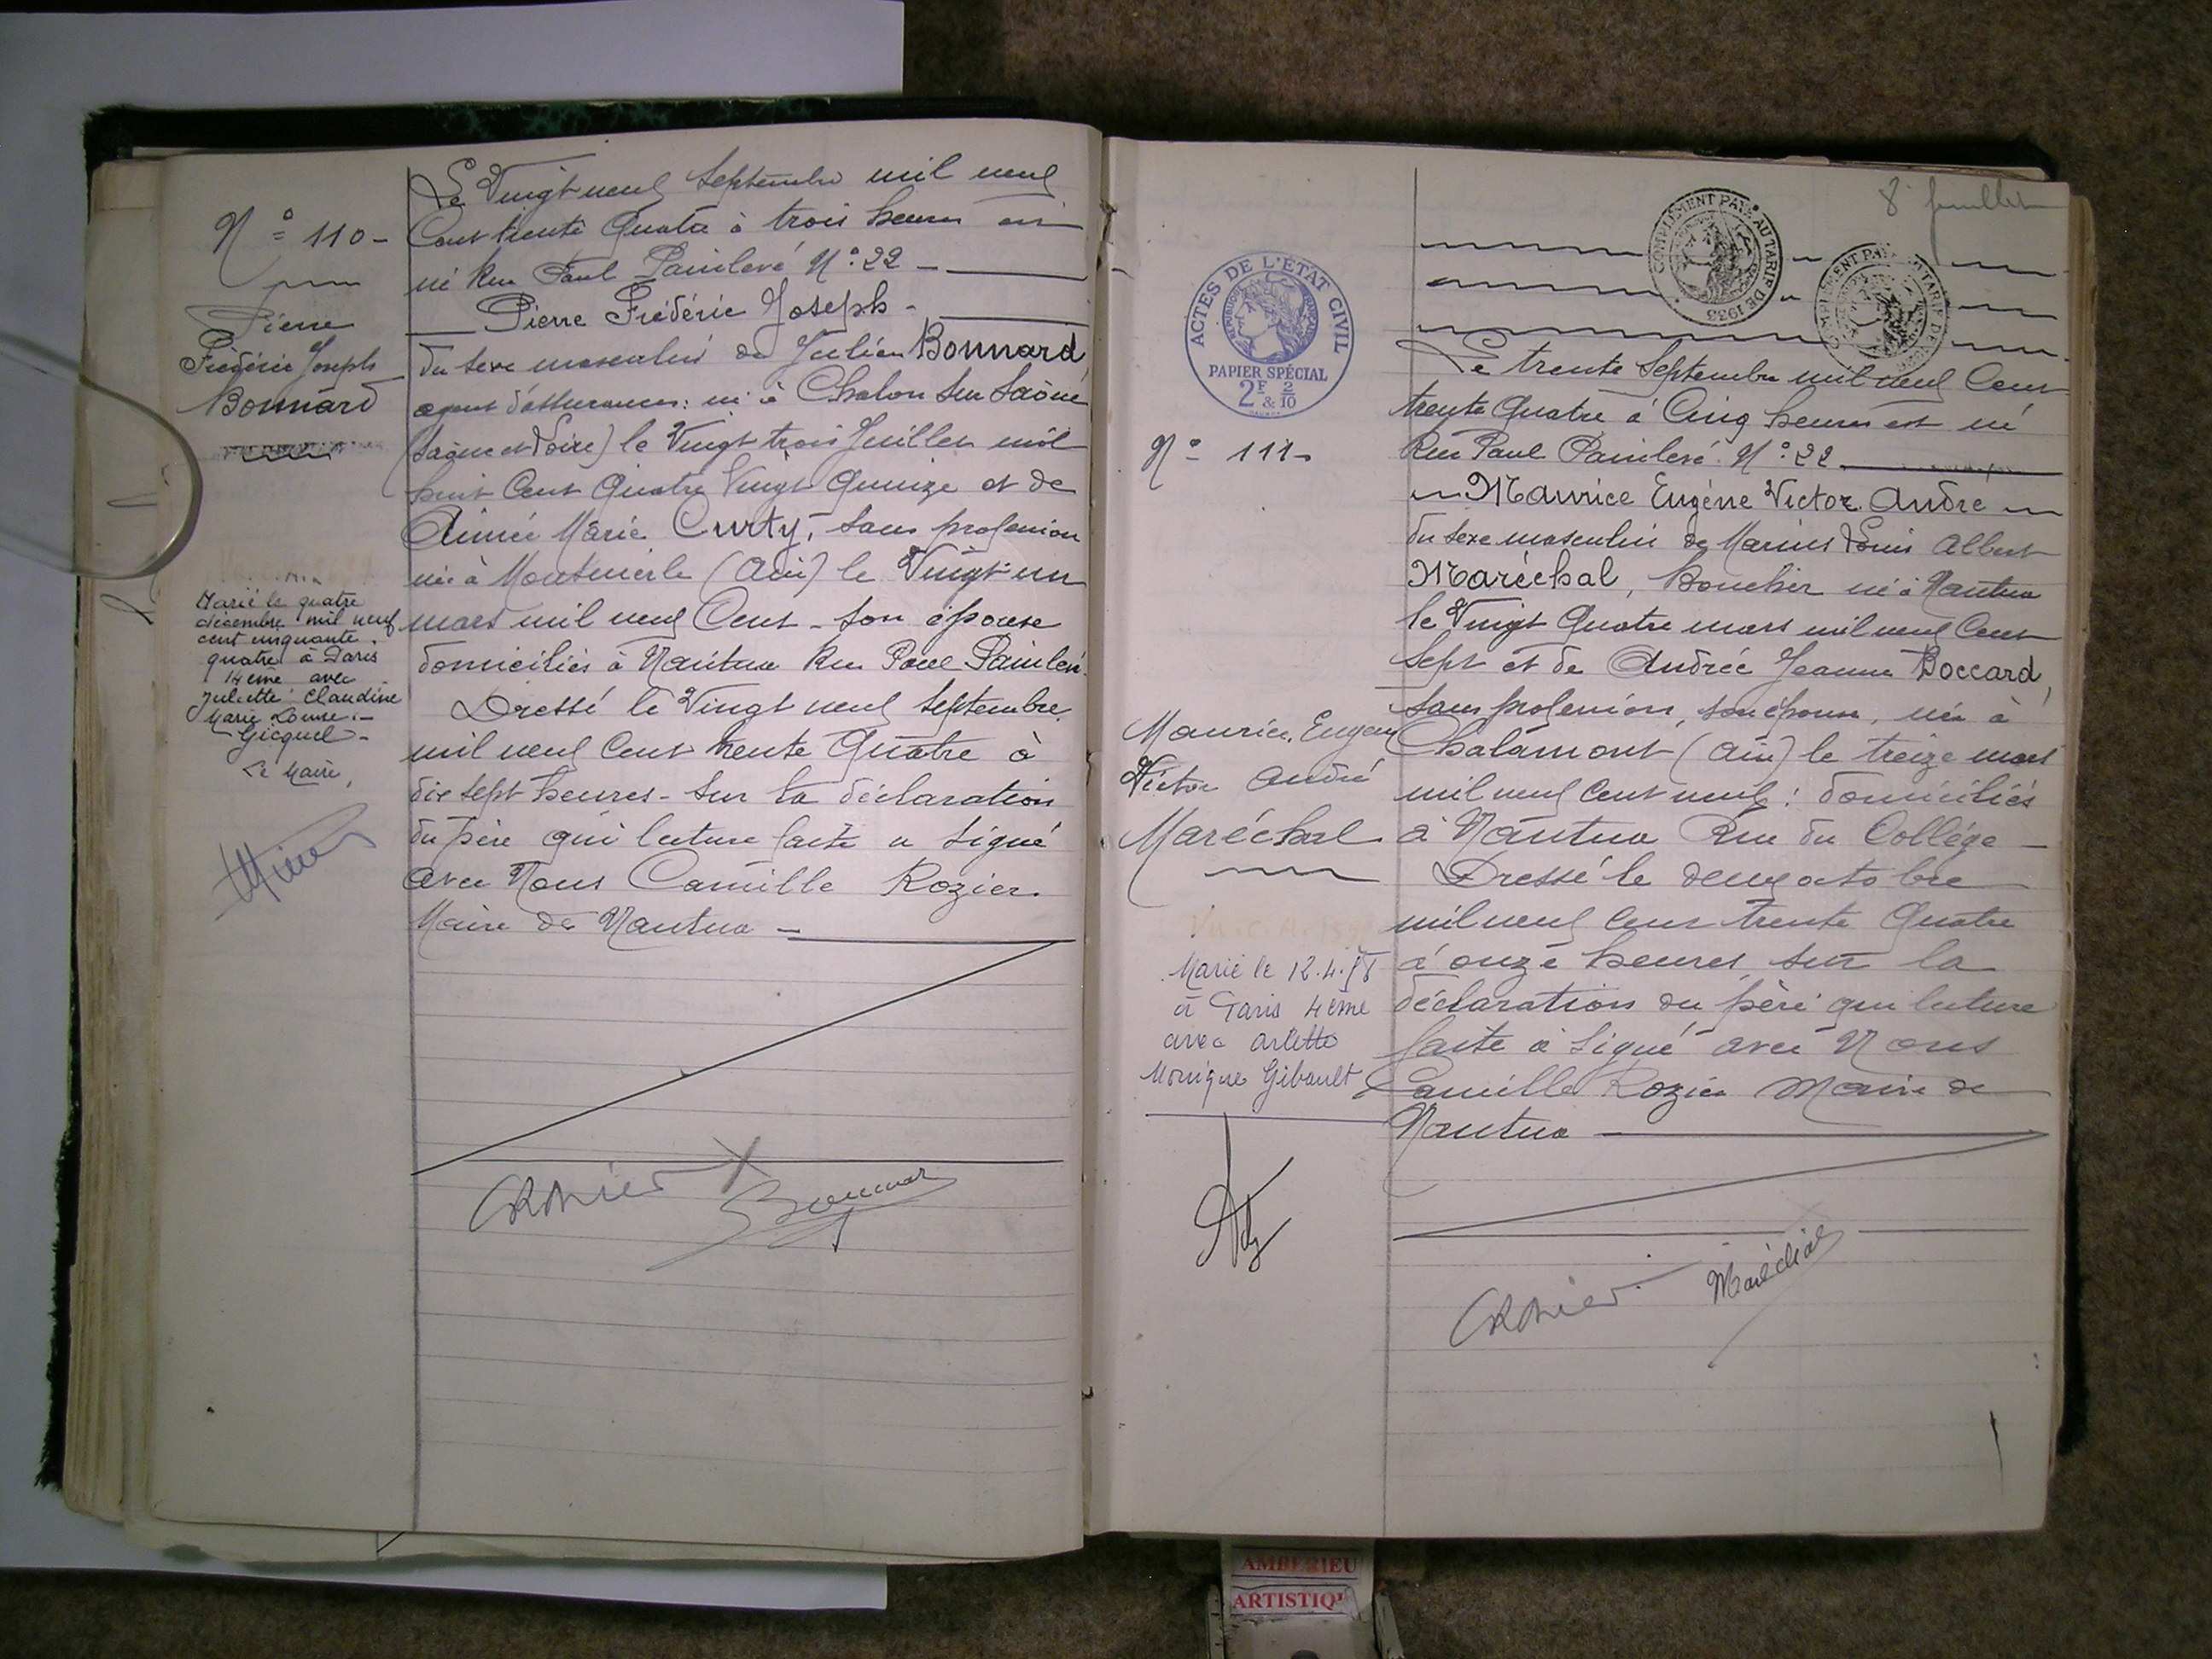 N° 110 -
Pierre
Frédéric Joseph
Bonnard
Marié le quatre
décembre mil neuf
cent cinquante
quatre à Paris
14ème avec
Juliette Claudine
Marie Louise -
Gicquel -
Le Maire,
Le Vingt neuf Septembre mil neuf
Cent trente Quatre à trois heures est
né Rue Paul Painlevé N° 22 -
Pierre Frédéric Joseph -
du sexe masculin de Julien Bonnard,
agent d'assurances : né à Chalon sur Saône
(Saône et Loire) le Vingt trois Juillet mil
huit Cent Quatre Vingt Quinze et de
Aimée Marie Curty, sans profession
née à Montmerle (Ain) le Vingt un
mars mil neuf Cent - son épouse
domiciliés à Nantua Rue Paul Painlevé.
Dressé le Vingt neuf Septembre
mil neuf Cent trente Quatre à
dix sept heures - sur la déclaration
du père qui lecture faite a signé
avec Nous Camille Rozier.
Maire de Nantua -
Bonnard
8 feuillet
COMPLÉMENT PAYÉ AU TARIF DE 1933
COMPLÉMENT PAYÉ AU TARIF DE 1933
ACTES DE L'ÉTAT CIVIL
RÉPUBLIQUE FRANÇAISE
PAPIER SPÉCIAL
2F & 2/10
N° 111 -
Maurice Eugène
Victor André
Maréchal
Marié le 12.4.
à Paris 4ème
avec Arlette
Monique Gibault
Le trente Septembre mil neuf Cent
trente Quatre à Cinq heures est né
Rue Paul Painlevé N° 22
Maurice Eugène Victor André
du sexe masculin de Marius Louis Albert
Maréchal, Boucher né à Nantua
le Vingt Quatre mars mil neuf Cent
Sept et de Andrée Jeanne Boccard,
sans profession, son épouse, née à
Chalamont (Ain) le treize mars
mil neuf Cent neuf : domiciliés
à Nantua Rue du Collège -
Dressé le deux octobre
mil neuf Cent trente Quatre
à onze heures, sur la
déclaration du père qui lecture
faite a signé avec Nous
Camille Rozier Maire de
Nantua
Maréchal
AMBERIEU
ARTISTIQ